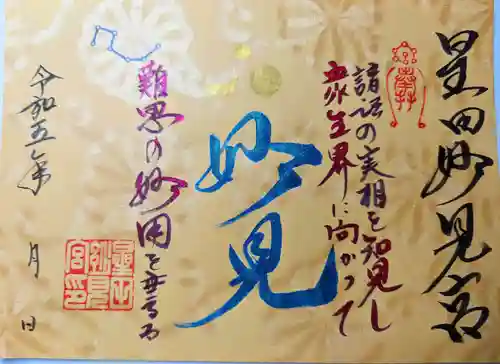 星田妙見宮
諸法の実相を知見し
衆生界に向かって
妙見
難思の妙用を垂るる
令和五年 月 日
星田妙見宮印